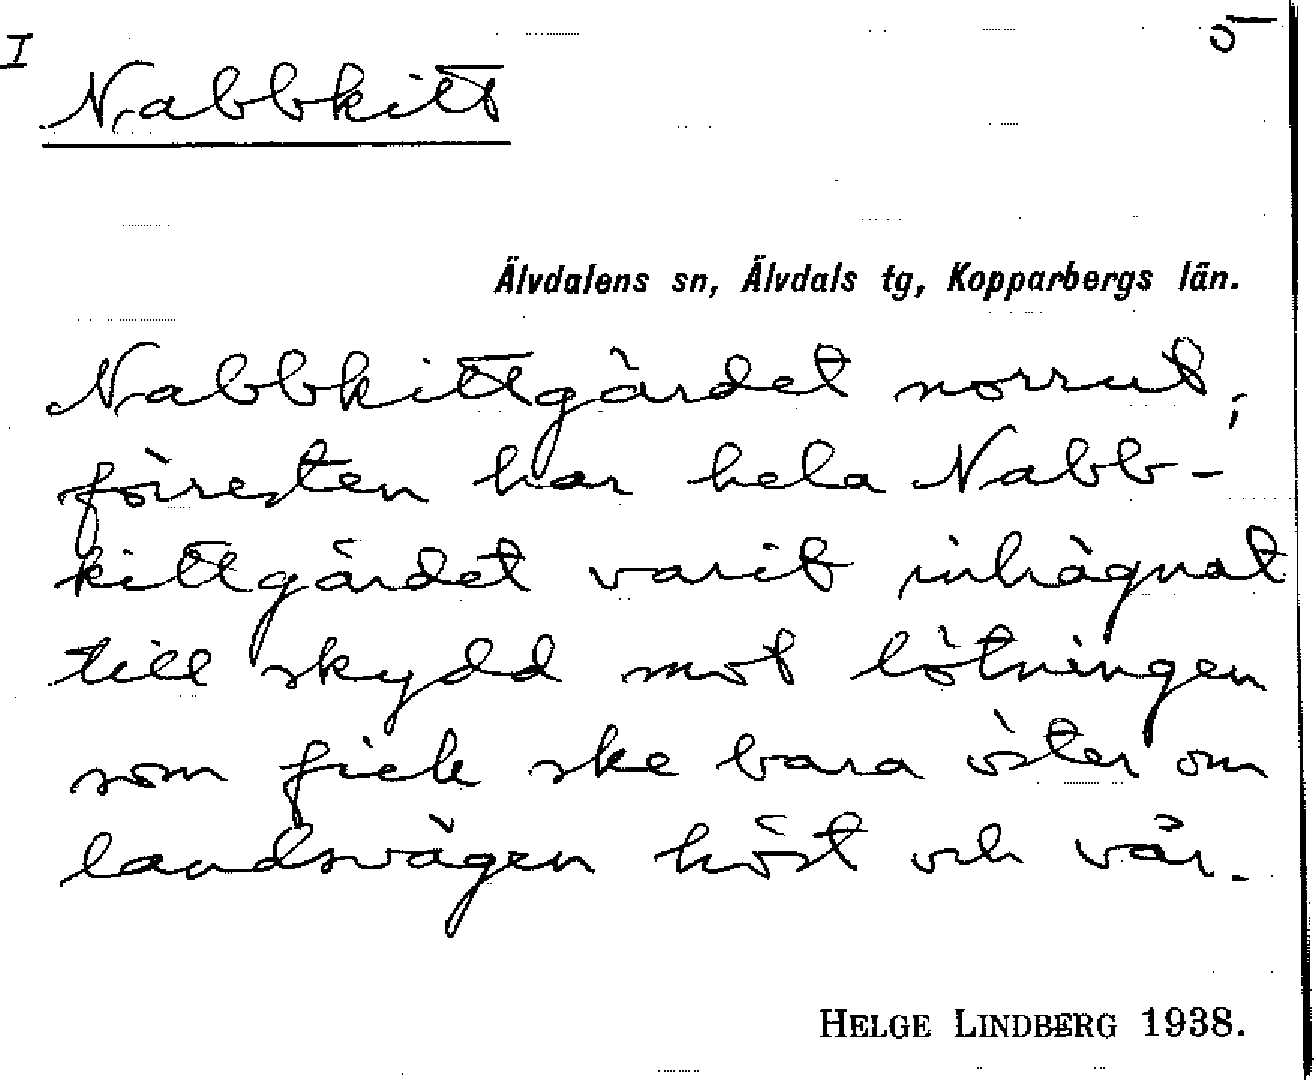 I
Nabbkitt
Älvdalens sn, Älvdals tg, Kopparbergs län.
Nabbkittgärdet norrut;
förresten har hela Nabb-
kittgärdet varit inhägnat
till skydd mot lötningen
som fick ske bara öster om
landsvägen höst och vår.
HELGE LINDBERG 1938.